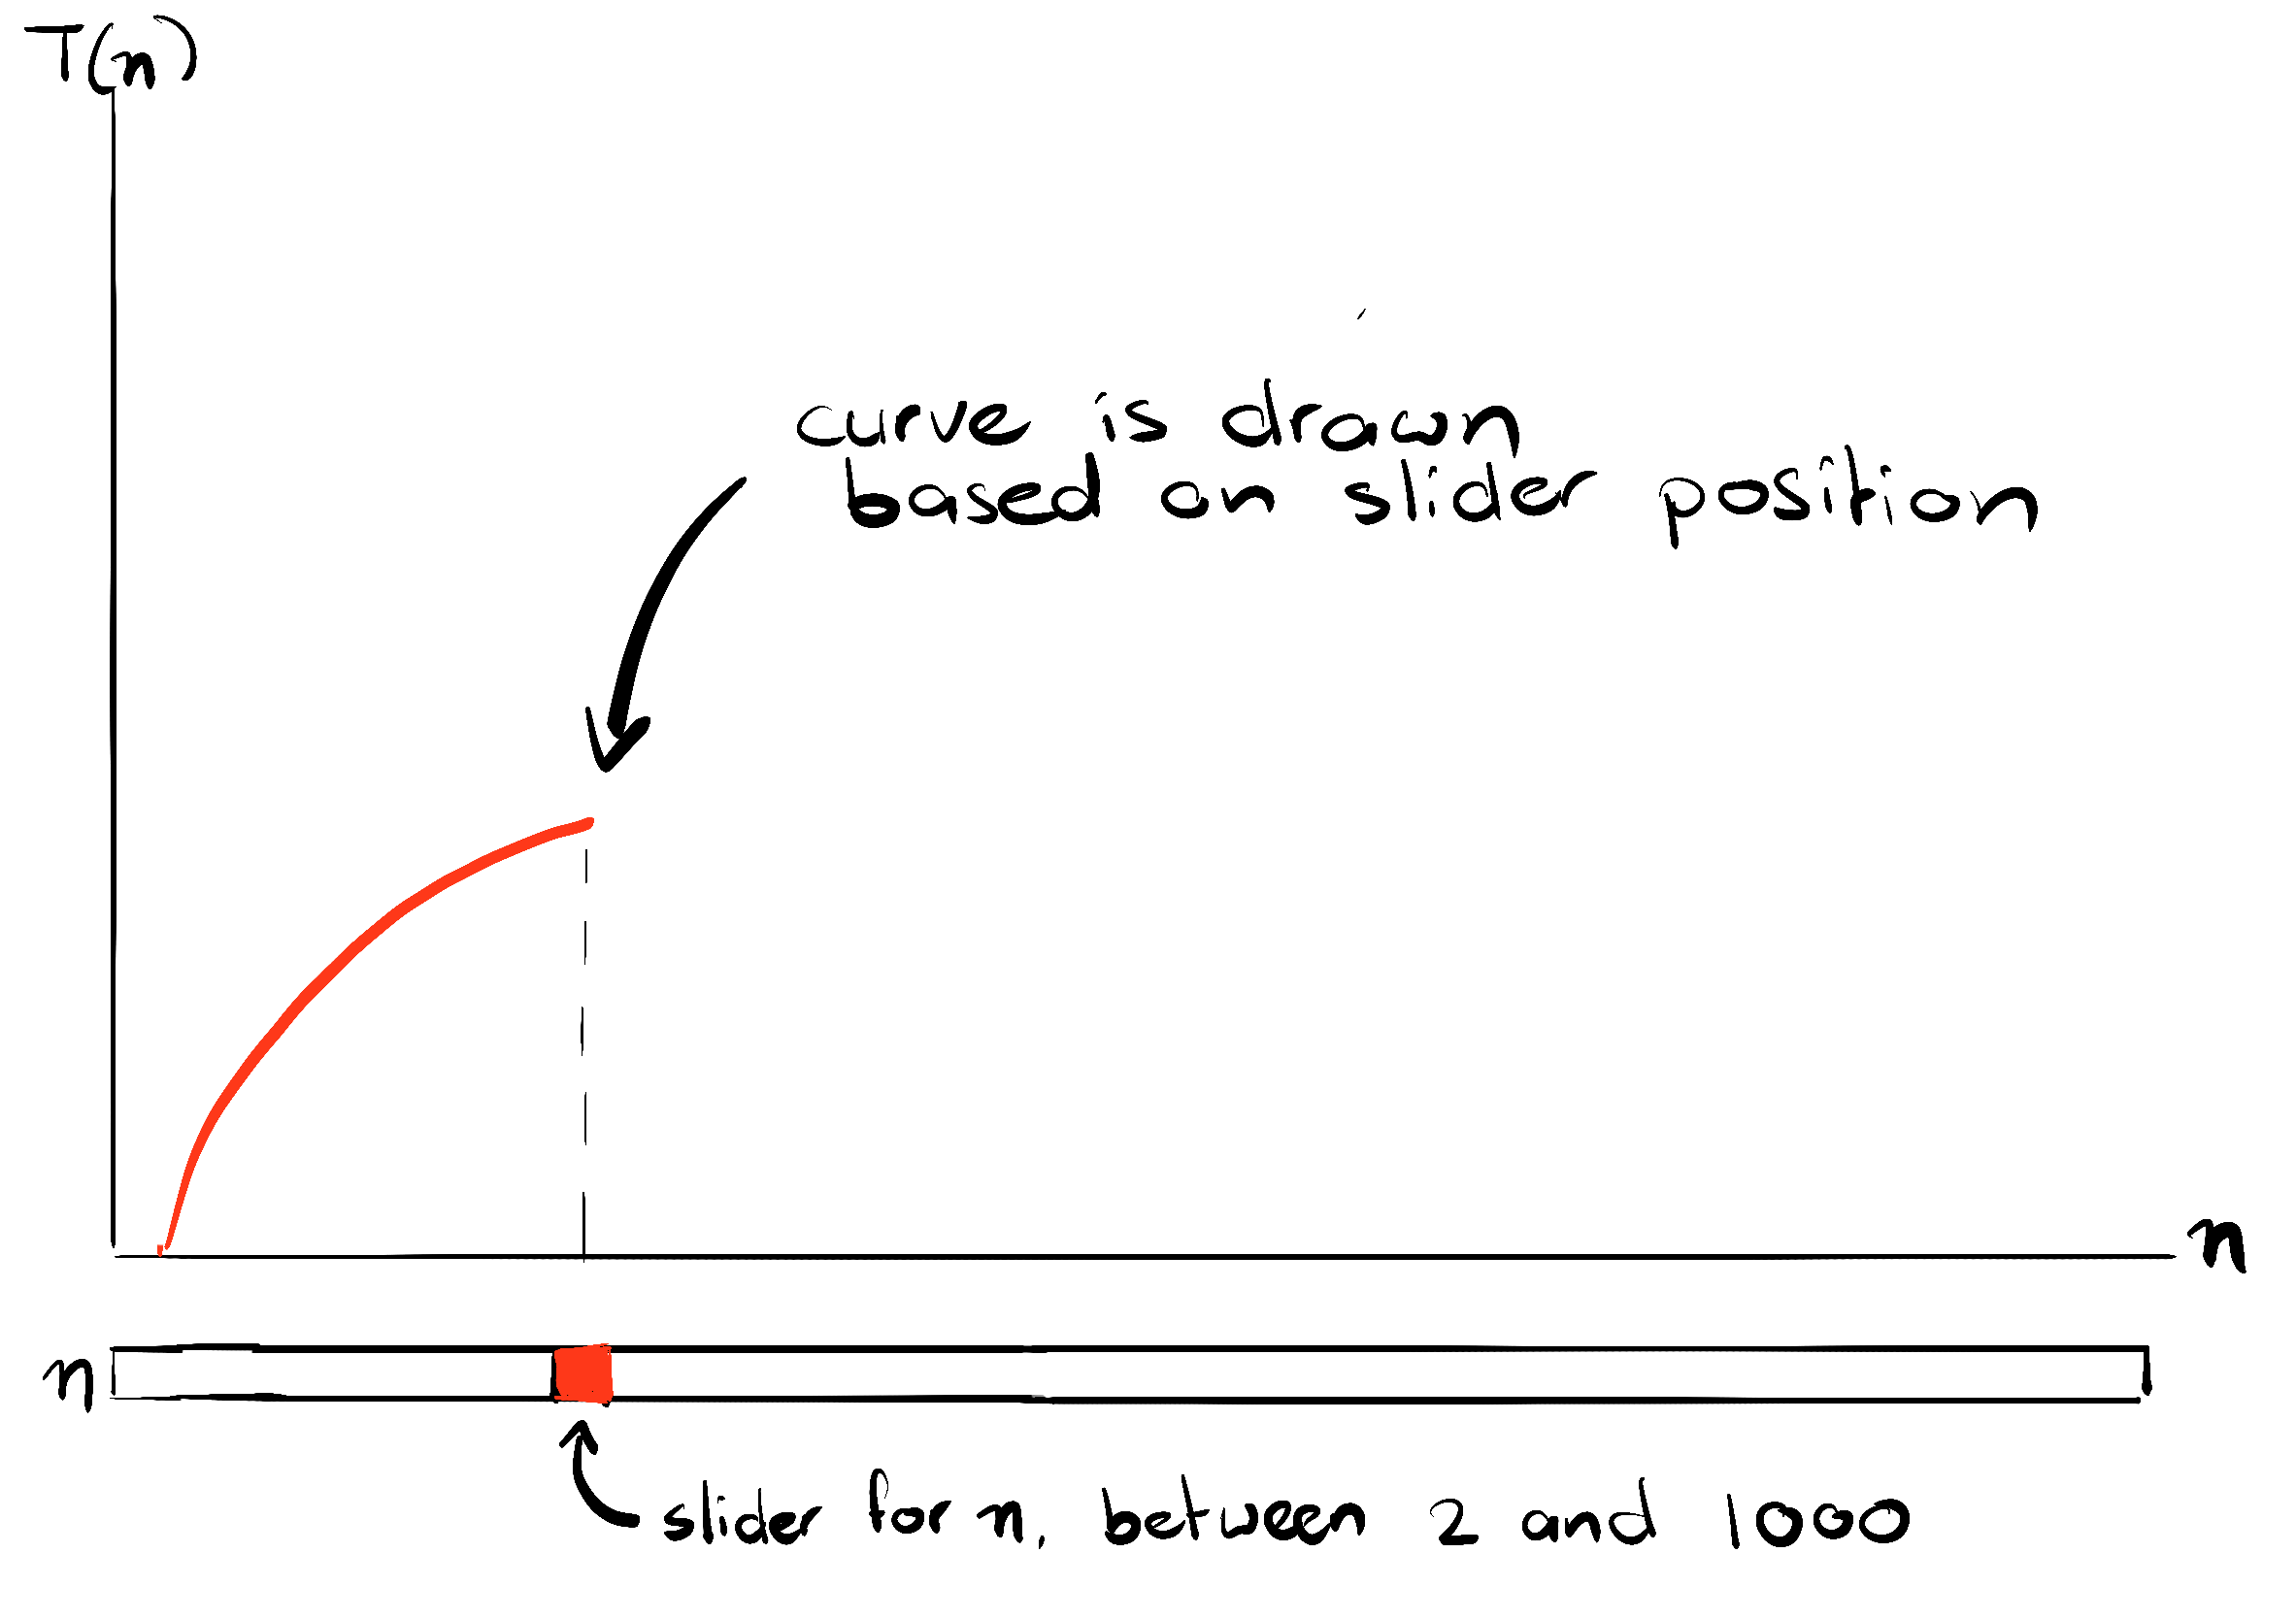 T(n)
curve is drawn
based on slider position
n
n
slider for n, between 2 and 1000